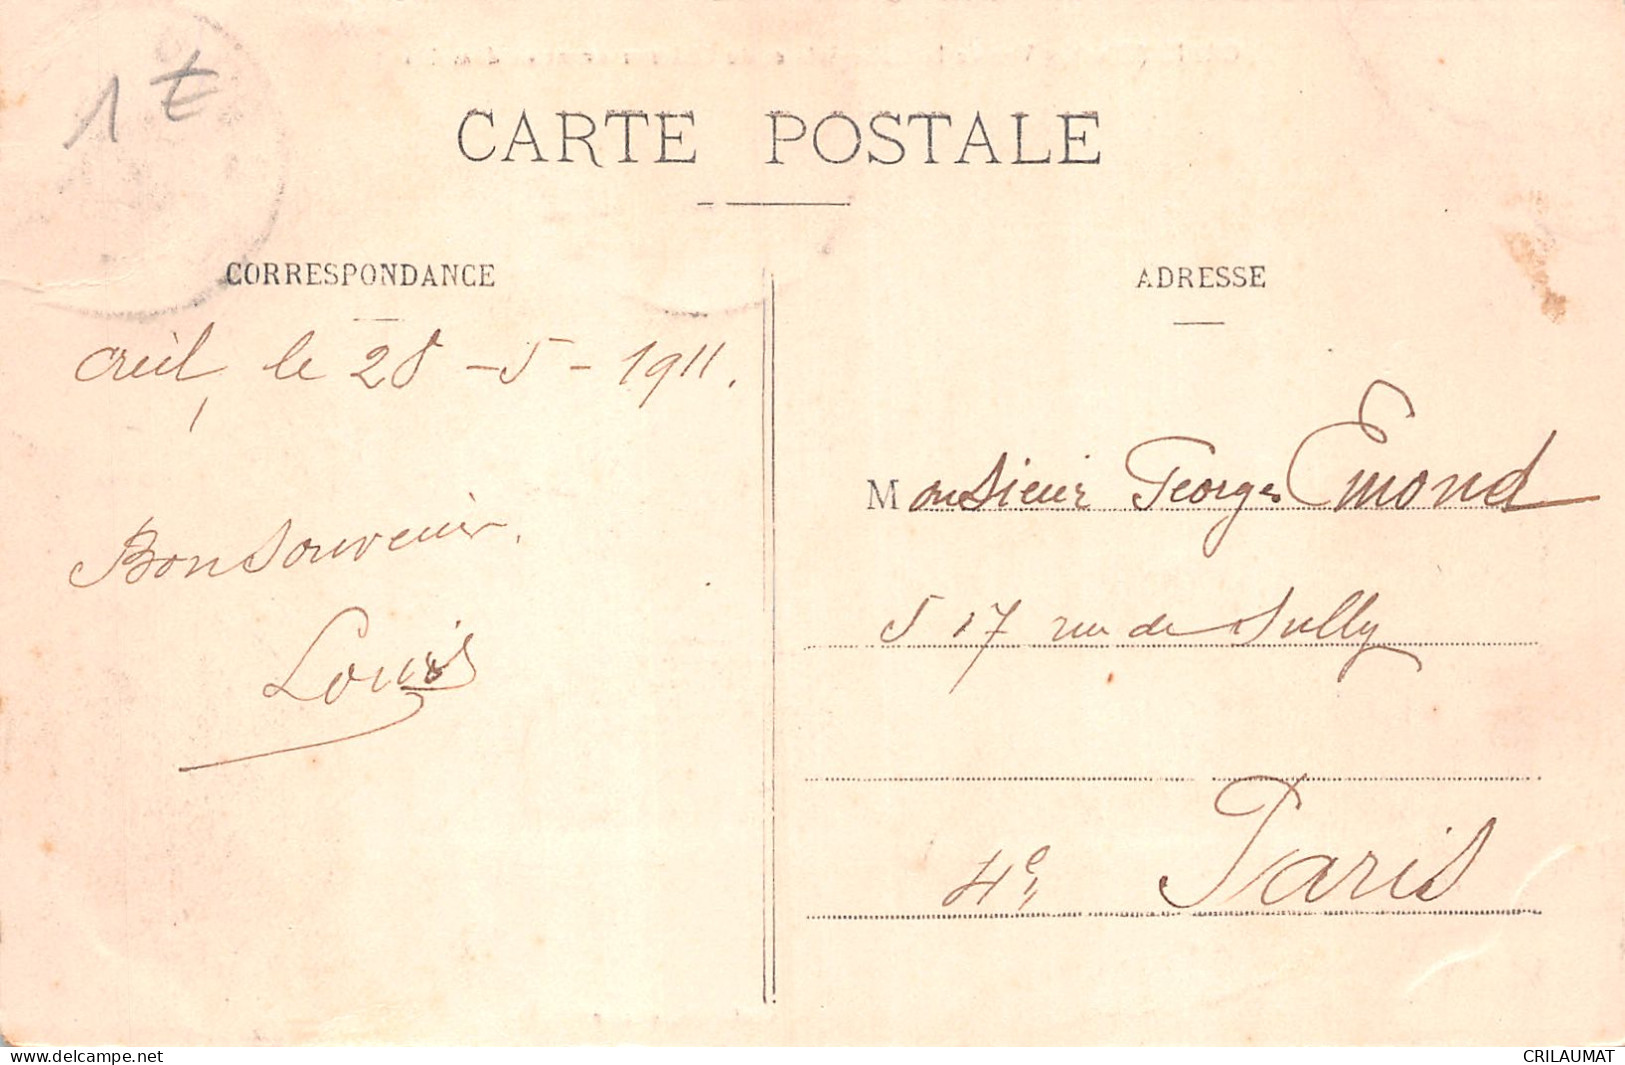 1 €
CARTE POSTALE
CORRESPONDANCE
Creil, le 28 - 5 - 1911.
Bon Souvenir.
Louis
ADRESSE
Monsieur Georges Emond
5 17 rue de Sully
4e Paris
www.delcampe.net
CRILAUMAT